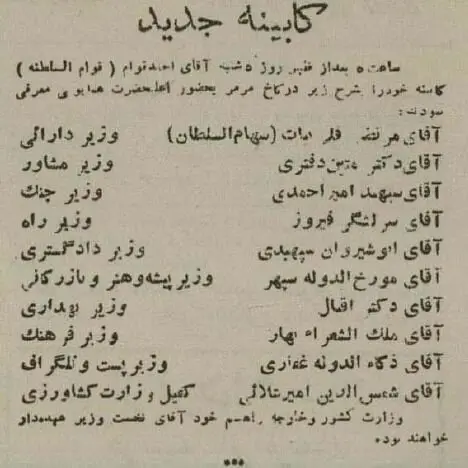 کابینه جدید
ساعت ۵ بعداز ظهر روز ۵شنبه آقای احمدقوام ( قوام السلطنه )
کابینه خودرا بشرح زیر درکاخ مرمر بحضور اعلیحضرت همایونی معرفی
نمودند:
آقای مرتضی قلی بیات (سهام‌السلطان) وزیر دارائی
آقای دکتر متین‌دفتری وزیر مشاور
آقای سپهبد امیراحمدی وزیر جنك
آقای سرلشگر فیروز وزیر راه
آقای انوشیروان سپهبدی وزیر دادگستری
آقای مورخ‌الدوله سپهر وزیر پیشه‌وهنر و بازرگانی
آقای دکتر اقبال وزیر بهداری
آقای ملك الشعراء بهار وزیر فرهنك
آقای ذکاء الدوله غفاری وزیر پست و تلگراف
آقای شمس‌الدین امیرعلائی کفیل وزارت کشاورزی
وزارت کشور وخارجه راهم خود آقای نخست وزیر عهده‌دار
خواهند بود